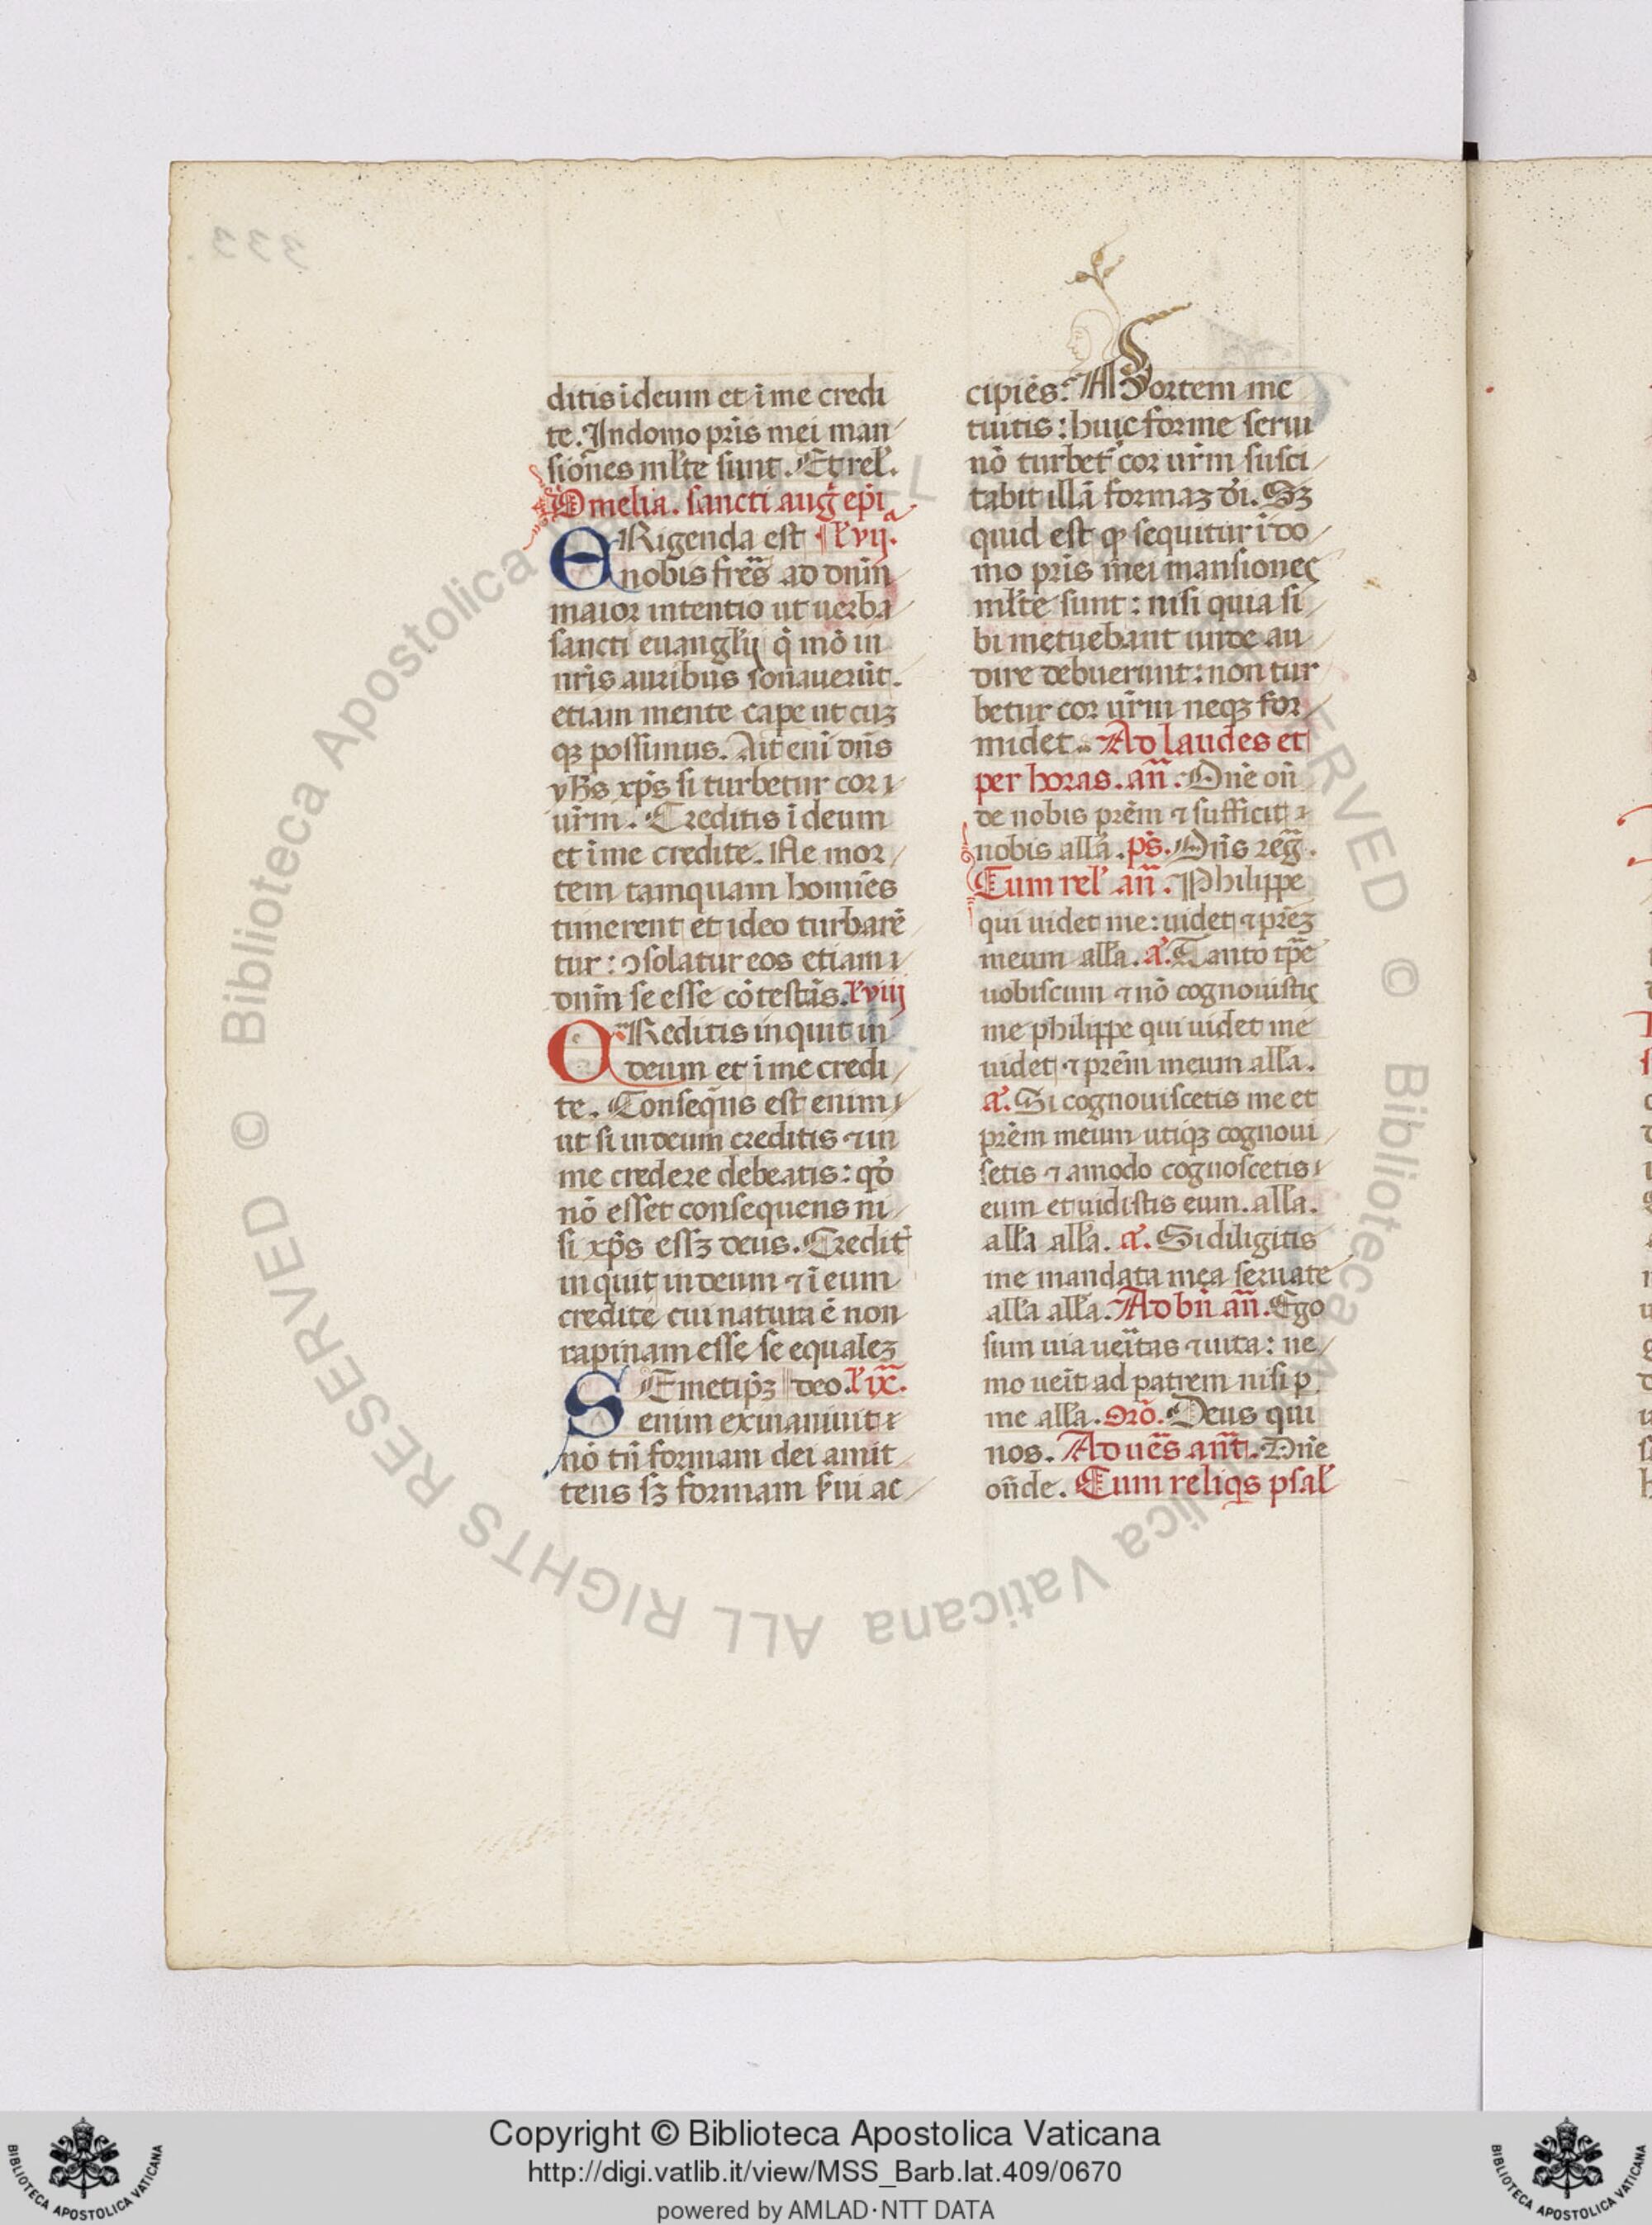 ditis ī deum et ī me credi
te. In domo pr̄is mei man
siōnes ml̄te sunt. Et rel̄.
Omelia. sancti auḡ ep̄i
ERigenda est l̄ vij.
nobis fr̄es ad dn̄m
maior intentio ut uerba
sancti euangl̄ij q̄ mō in
nr̄is auribus sonauerūt.
etiam mente cape ut cūz
qʒ possimus. Ait enī dn̄s
yh̄s xp̄s si turbetur cor
ur̄m. Creditis ī deum
et ī me credite. Ne mor
tem tamquam homīes
timerent et ideo turbarē
tur: ↄsolatur eos etiam
dn̄m se esse cōtestās. l̄ viij
CReditis inquit in
deum et ī me credi
te. Conseqn̄s est enim
ut si in deum creditis ⁊ in
me credere debeatis: qō
nō esset consequens ni
si xp̄s essʒ deus. Credit̄
inquit in deum ⁊ ī eum
credite cui natura ē non
rapinam esse se equaleʒ
SEmetip̄ʒ deo. l̄ ix.
enim exinaniuit
nō tn̄ formam dei amit
tens sʒ formam s̄ui ac
cipiēs. Mortem me
tuitis: huic forme serui
nō turbet̄ cor ur̄m susci
tabit illā formaʒ dī. Sʒ
quid est qp sequitur ī do
mo pr̄is mei mansiones
ml̄te sunt: nisi quia si
bi metuebant unde au
dire debuerunt: non tur
betur cor ur̄m neqʒ for
midet. Ad laudes et
per horas. an̄. Dn̄e on̄
de nobis pr̄em ⁊ sufficit
nobis all̄a. ps̄. Dn̄s reḡ.
Cum rel̄ an̄. Philippe
qui uidet me: uidet ⁊ pr̄eʒ
meum all̄a. a̅. Tanto tp̄e
uobiscum ⁊ nō cognouistis
me philippe qui uidet me
uidet ⁊ pr̄em meum all̄a.
a̅. Si cognouiscetis me et
pr̄em meum utiqʒ cognoui
setis ⁊ amodo cognoscetis
eum et uidistis eum. all̄a.
all̄a all̄a. a̅. Si diligitis
me mandata mea seruate
all̄a all̄a. Ad bn̄ an̄. Ego
sum uia ueītas ⁊ uita: ne
mo ueīt ad patrem nisi p
me all̄a. orō. Deus qui
nos. Ad ues̄ ant̄. Dn̄e
on̄de. Cum reliqs psal̄
Copyright © Biblioteca Apostolica Vaticana
http://digi.vatlib.it/view/MSS_Barb.lat.409/0670
powered by AMLAD·NTT DATA